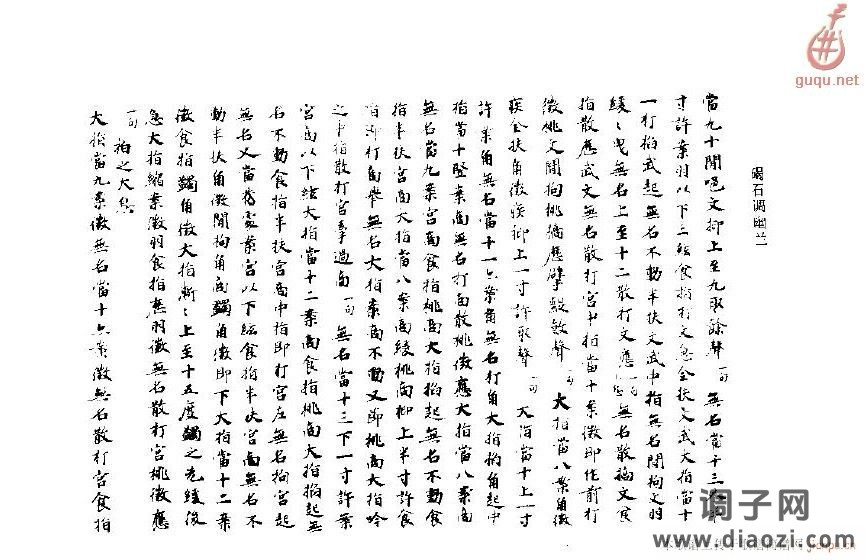 碣石调幽兰
當九十閒咽文抑上至九取餘聲 一句 無名當十三外
寸許案羽以下三絃食指打文急全扶文武大指當十
一打掐武起無名不動半扶文武中指無名閒拘文羽
緩緩曳無名上至十二散打文應 一句 無名散摘文食
指散應武文無名散打宮中指當十案徵即作前打
徵挑文閒拘挑摘應擘敲敏聲 一句 大指當八案角徵
疾全扶角徵疾抑上一寸許取聲 一句 大指當十上一寸
許案角無名當十一案角無名打角大指掐角起中
指當十竪案商無名打商散挑徵應大指當八案商
無名當九案宮商食指挑商大指掐起無名不動食
指半扶宮商大指當八案商緩挑商抑上半寸許食
無名打商舉無名大指案商不動又即挑商大指吟
之中指散打宮 過商 一句 無名當十三下一寸許案
宮商以下絃大指當十二案商食指挑商大指掐起無
名不動食指半扶宮商中指即打宮無名拘宮起
無名又當舊處案宮以下絃食指半扶宮商無名不
動半扶角徵閒拘角商蠲角徵即下大指當十二案
徵食指蠲角徵大指漸漸上至十五度蠲之先緩後
急大指縮案徵羽食指應羽徵無名散打宮挑徵應
一句 拍之大息
大指當九案徵無名當十案徵無名散打宮食指
guqu.net
调子网
www.diaozi.com